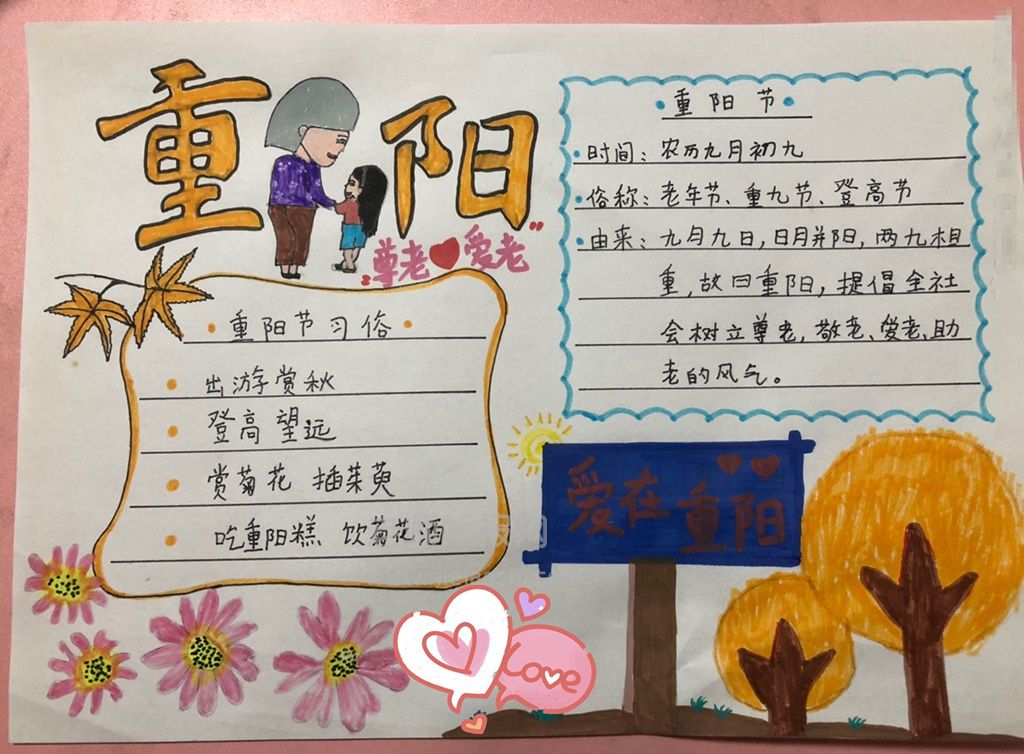 重阳
尊老爱老
重阳节习俗
出游赏秋
登高望远
赏菊花 插茱萸
吃重阳糕 饮菊花酒
重阳节
时间：农历九月初九
俗称：老年节、重九节、登高节
由来：九与九日，日月并阳，两九相
重，故曰重阳，提倡全社
会树立尊老，敬老、爱老、助
老的风气。
爱在重阳
Love